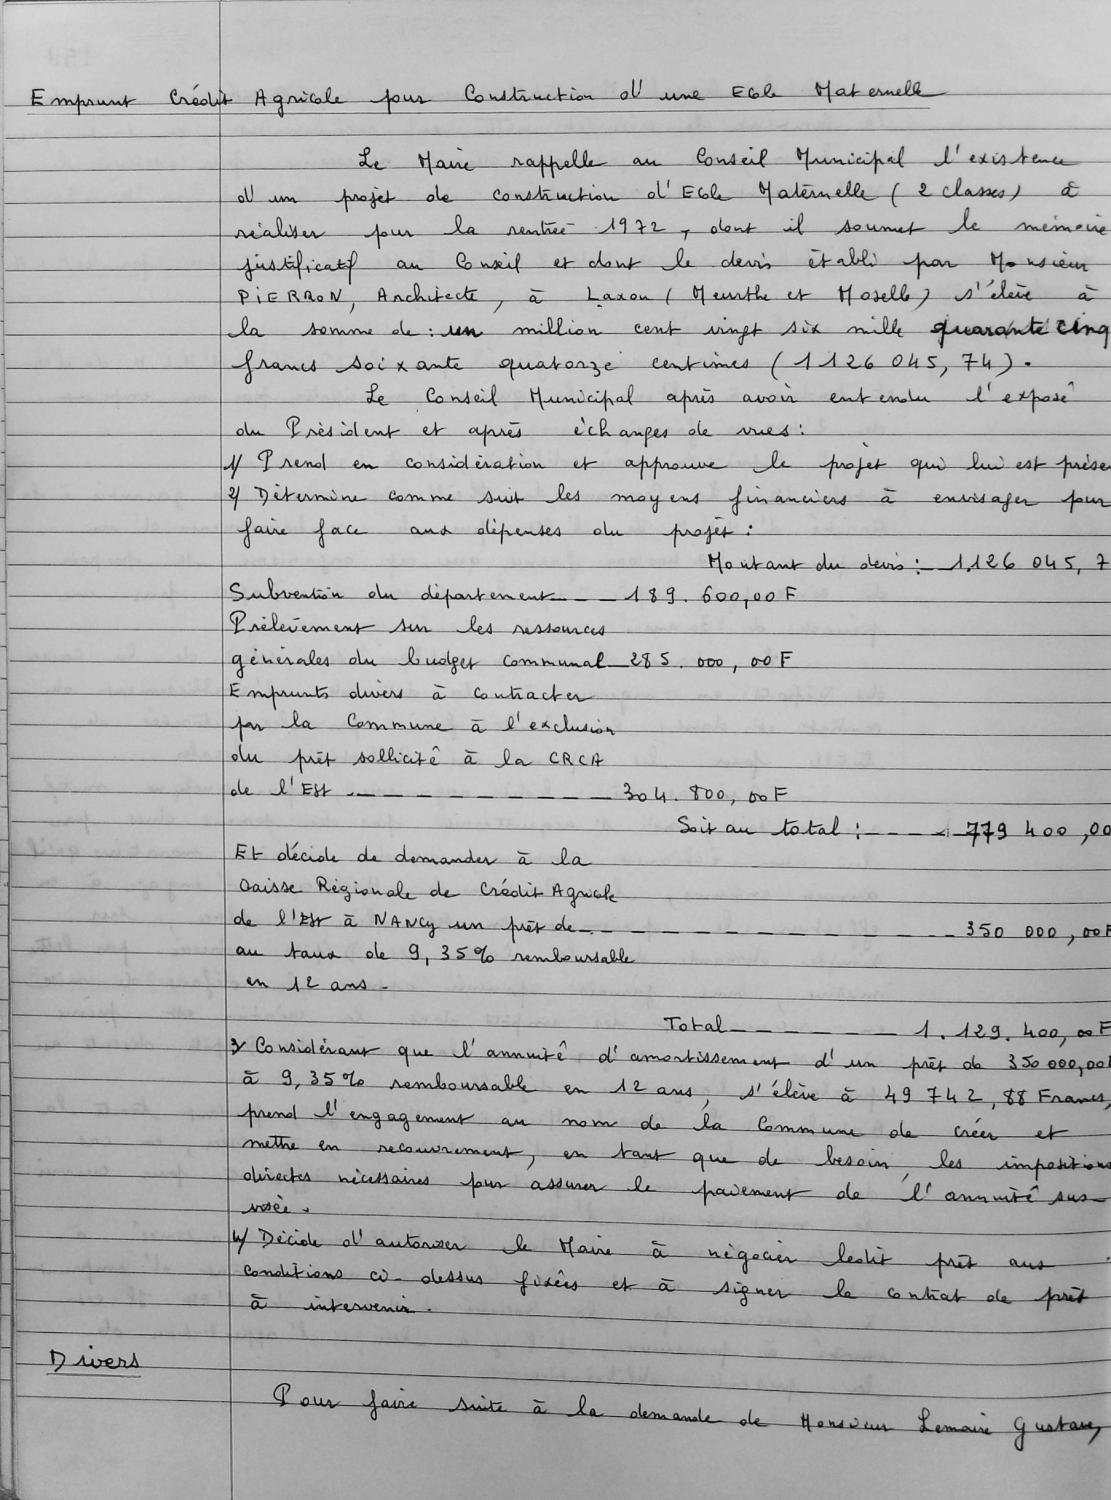 Emprunt Crédit Agricole pour Construction d'une Ecole Maternelle
Le Maire rappelle au Conseil Municipal l'existence
d'un projet de construction d'Ecole Maternelle (2 classes) à
réaliser pour la rentrée 1972, dont il soumet le mémoire
justificatif au Conseil et dont le devis établi par Monsieur
PIERRON, Architecte, à Laxou (Meurthe et Moselle) s'élève à
la somme de : un million cent vingt six mille quarante cinq
francs soixante quatorze centimes (1 126 045, 74).
Le Conseil Municipal après avoir entendu l'exposé
du Président et après échanges de vues :
1/ Prend en considération et approuve le projet qui lui est prése
2/ Détermine comme suit les moyens financiers à envisager pour
faire face aux dépenses du projet :
Montant du devis : 1.126 045, 7
Subvention du département --- 189. 600,00 F
Prélèvement sur les ressources
générales du budget communal 285. 000, 00 F
Emprunts divers à contracter
par la Commune à l'exclusion
du prêt sollicité à la CRCA
de l'Est --------- 304. 800, 00 F
Soit au total : ---- 779 400,00
Et décide de demander à la
Caisse Régionale de Crédit Agricole
de l'Est à NANCY un prêt de ------------- 350 000,00 F
au taux de 9,35% remboursable
en 12 ans -
Total ------ 1. 129. 400,00 F
3/ Considérant que l'annuité d'amortissement d'un prêt de 350 000,00
à 9,35% remboursable en 12 ans, s'élève à 49 742, 88 Francs,
prend l'engagement au nom de la Commune de créer et
mettre en recouvrement, en tant que de besoin, les impositions
directes nécessaires pour assurer le paiement de l'annuité sus-
visée.
4/ Décide d'autoriser le Maire à négocier ledit prêt aux
conditions ci-dessus fixées et à signer le contrat de prêt
à intervenir.
Divers
Pour faire suite à la demande de Monsieur Lemaire Gustave,